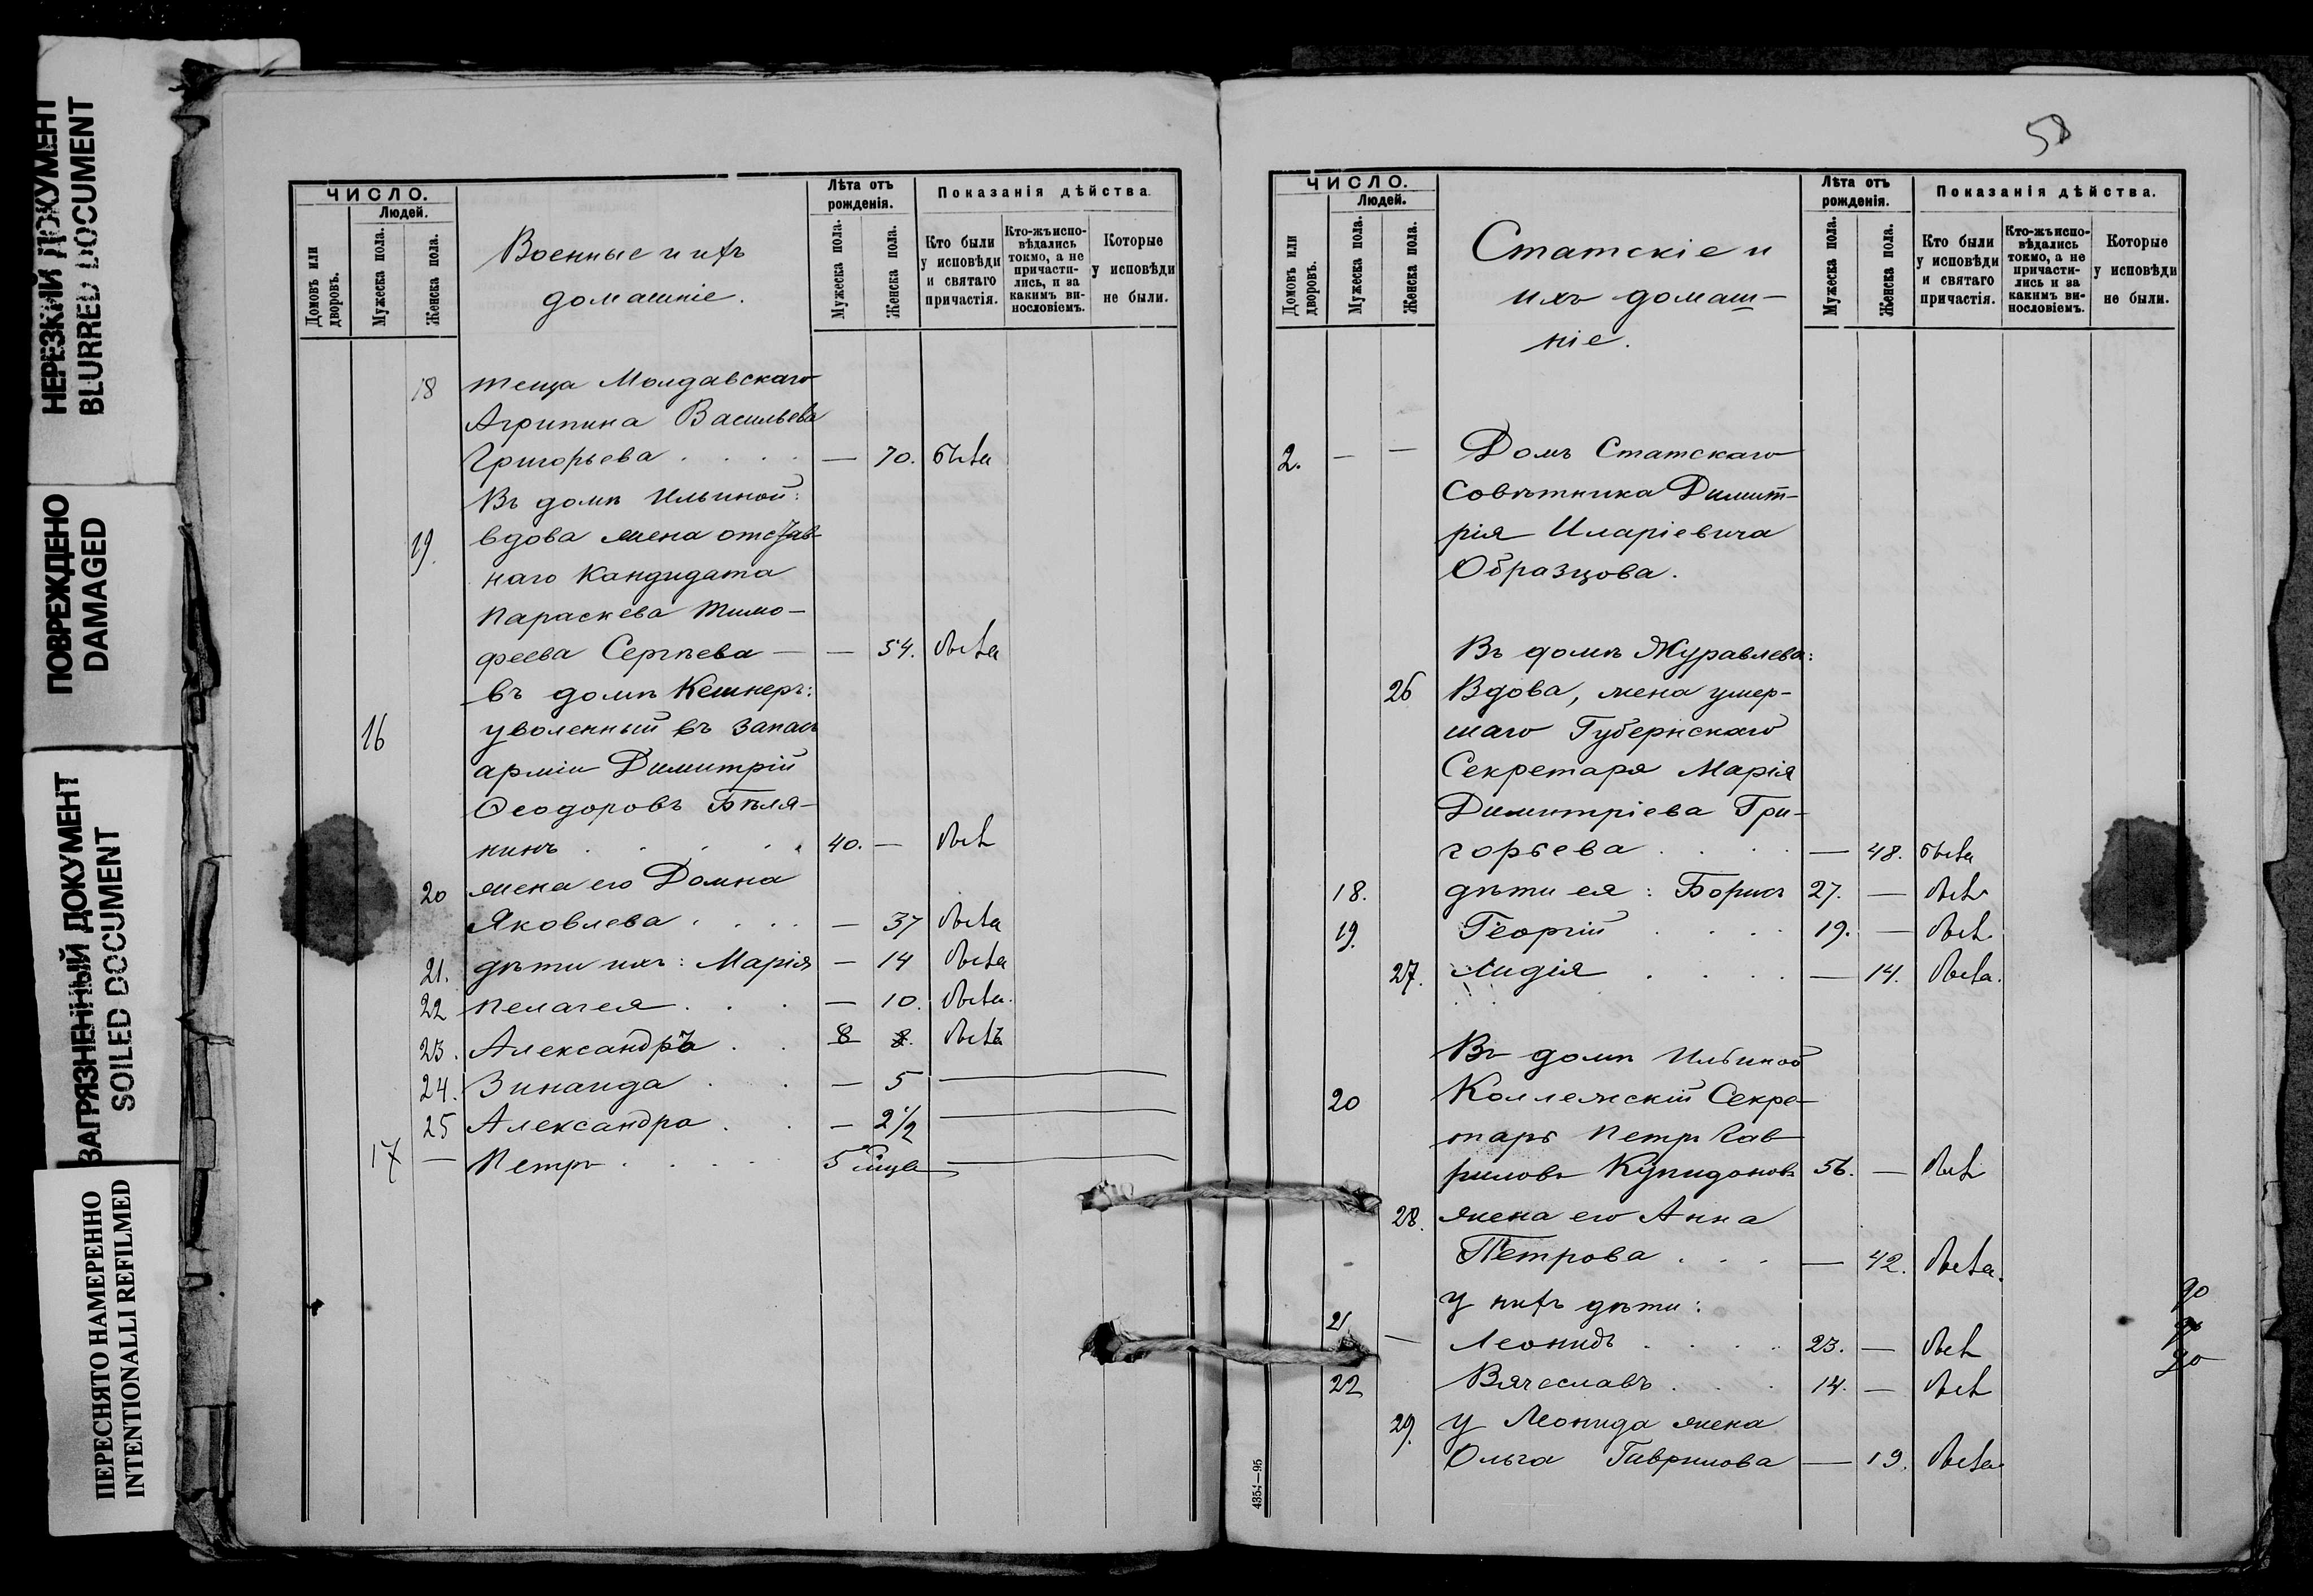 НЕРЕЗКИЙ ДОКУМЕНТ
BLURRED DOCUMENT
ПОВРЕЖДЕНО
DAMAGED
ЗАГРЯЗНЕННЫЙ ДОКУМЕНТ
SOILED DOCUMENT
ПЕРЕСНЯТО НАМЕРЕННО
INTENTIONALLI REFILMED
ЧИСЛО.
Людей.
Домовъ или дворовъ.
Мужеска пола.
Женска пола.
Военные и ихъ
домашніе.
Лѣта отъ
рожденія.
Мужеска пола.
Женска пола.
Показанія дѣйства.
Кто были
у исповѣди
и святаго
причастія.
Кто-жъ испо-
вѣдались
токмо, а не
причасти-
лись, и за
какимъ ви-
нословіемъ.
Которые
у исповѣди
не были.
18 теща Молдавскаго
Агрипина Васильева
Григорьева . . . . — 70. была
Въ домѣ Ильиной:
19. вдова жена отстав
наго Кандидата
Параскева Тимо-
феева Сергѣева — — 54. была
въ домѣ Кешнеръ:
16 уволенный въ запасъ
арміи Димитрій
Ѳеодоровъ Бѣля-
нинъ . . . . . 40. — былъ
20 жена его Домна
Яковлева . . . . — 37 была
21. дѣти ихъ: Марія — 14 была
22 Пелагея . . . — 10. была.
23. Александръ . . 8 8. былъ
24. Зинаида . . — 5 —
25 Александра . . — 2 1/2 —
17 — Петръ . . . . 5 мѣца —
58
ЧИСЛО.
Людей.
Домовъ или дворовъ.
Мужеска пола.
Женска пола.
Статскіе и
ихъ домаш-
ніе.
Лѣта отъ
рожденія.
Мужеска пола.
Женска пола.
Показанія дѣйства.
Кто были
у исповѣди
и святаго
причастія.
Кто-жъ испо-
вѣдались
токмо, а не
причасти-
лись и за
какимъ ви-
нословіемъ.
Которые
у исповѣди
не были.
2. — — Домъ Статскаго
Совѣтника Димит-
рія Иларіевича
Образцова.
Въ домѣ Журавлева:
26 Вдова, жена умер-
шаго Губернскаго
Секретаря Марія
Димитріева Гри-
горьева . . . . — 48. была
18. дѣти ея: Борисъ 27. — былъ
19. Георгій . . . . 19. — былъ
27. Лидія . . . . — 14. была.
Въ домѣ Ильиной
20 Коллежскій Секре-
тарь Петръ Гав
риловъ Купидоновъ 56. — былъ
28. жена его Анна
Петрова . . . — 42. была.
У нихъ дѣти:
21 — Леонидъ . . . . 23. — былъ
22 Вячеславъ . . . 14. — былъ
29. У Леонида жена
Ольга Гаврилова — 19. была
4354—95